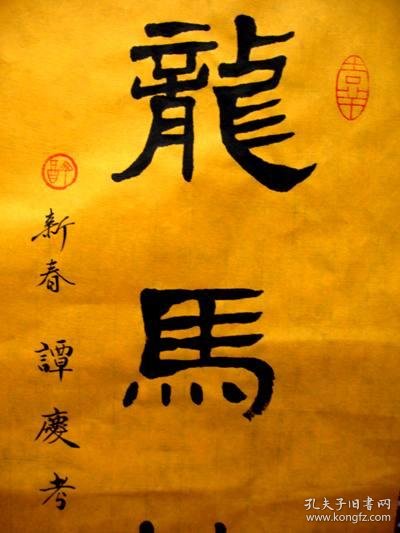 龍馬
新春 譚慶考
孔夫子旧书网
www.kongfz.com